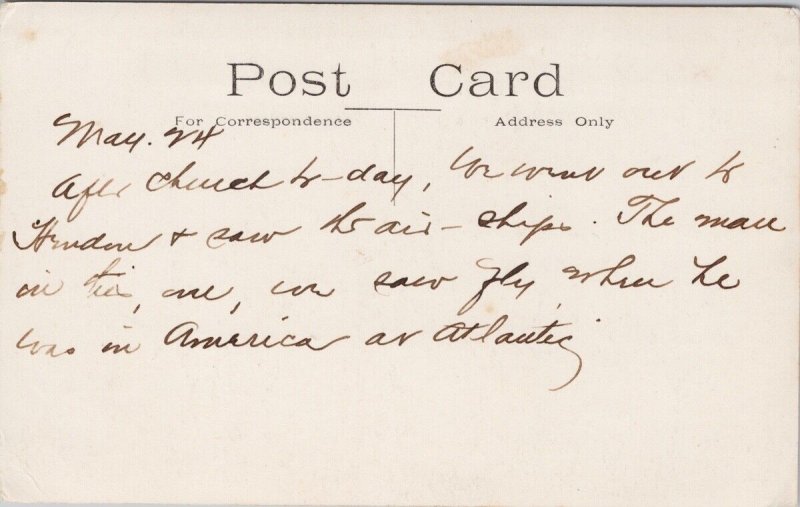 Post Card
For Correspondence Address Only
May. 24
After church to-day, we went out to
Hendon & saw the air-ships. The man
in this, one, we saw fly, when he
was in America at Atlantic